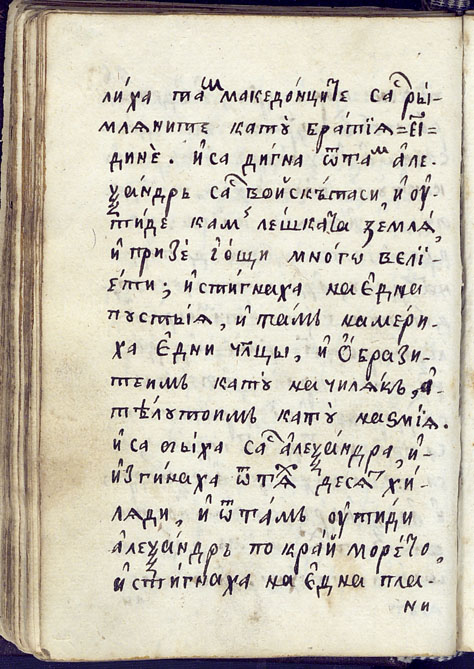 ли́ха та^м македо́нците са^с ры́-
мляните като̀ братїя=е҆ї=
динѐ. и҆ са ди́гна ѿта^м але-
ѯа́ндръ са^с во́йскътаси, и҆ оу҆-
ти́де кам^ъ ле́шката земля̀,
и҆ призѐ і҆о́щи мно́гѡ велїе-
е́ти; и҆ сти́гнаха на є҆дна
пусты́я, и҆ та́мъ намери-
ха є҆дни ч҃лцы, и҆ ѻ҆́брази-
теимъ като̀ на чиля́къ, а҆
тѣ́лутоимъ като̀ на ѕмїя.
и҆ са би́ха са^с а҆леѯа́ндра, и҆-
и҆зги́наха ѿ тѧ^х деся^т хи́-
ляди, и҆ ѿта́мъ оу҆ти́ди
а҆леѯа́ндръ по кра́й море́то,
и҆ сти́гнаха на є҆дна пла-
ни